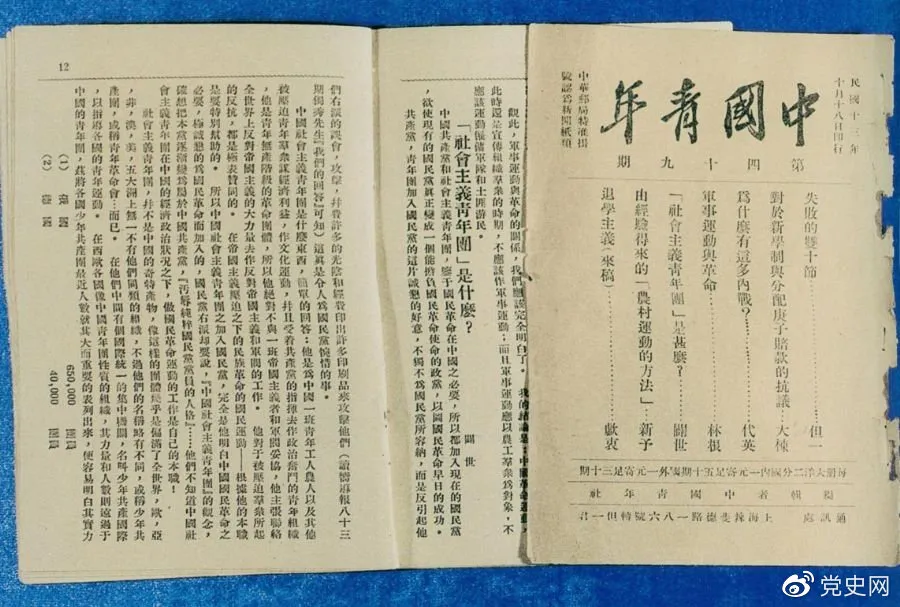 民國十三年
十月十八日印行
中國青年
第四十九期
中華郵局特准掛
號認為新聞紙類
失敗的雙十節…………但一
對於新學制與分配庚子賠款的抗議…大棟
為什麼有這多內戰?…………代英
軍事運動與革命…………林根
「社會主義青年團」是甚麼?…………闢世
由經驗得來的「農村運動的方法」…新予
退學主義(來稿)…………獻衷
每冊大洋二分國內一元寄足五十期國外一元寄足三十期
編輯者中國青年社
通訊處 上海辣斐德路一八六號轉但一君
我的結論是:中國革命運動,
觀此,軍事運動與革命的關係,我們應該完全明白了。
此時還是宣傳組織羣衆的時期,不應該作軍事運動;而且軍事運動應以農工羣衆為對象,不
應該運動僱傭軍隊和土匪游民。
「社會主義青年團」是什麼?
闢世
中國共產黨和社會主義青年團,鑒于國民革命在中國之必要,所以都加入現在的國民黨
,欲使現有的國民黨眞正變成一個能擔負國民革命使命的政黨,以圖國民革命早日的成功。
共產黨,青年團加入國民黨的這片誠懇的好意,不獨不為國民黨所容納,而是反引起他
12
們右派的誤會,攻擊,并費許多的光陰和經費印出許多印刷品來攻擊他們(讀嚮導報八十三
期獨秀先生『我們的回答』可知)這眞是令人為國民黨惋惜的事。
中國社會主義青年團是什麼東西,簡單的回答:他是為中國一班青年工人農人以及其他
被壓迫青年羣衆謀經濟利益,作文化運動,并且受着共產黨的指揮去作政治奮鬥的青年組織
,他是青年無產階級的革命團體,所以他絕對不與一班帝國主義者和軍閥妥協,他主張聯絡
全世界上反對帝國主義的大力量去作反對帝國主義和軍閥的工作。他對于被壓迫羣衆所起
的反抗,都是極表贊同的。在帝國主義壓迫之下的民族革命的國民運動——根據他的本職
是要特別幫助的。所以中國社會主義青年團之加入國民黨,完全是他明白中國國民革命之
必要,極誠懇的為國民革命而加入的,國民黨右派却要說,『中國社會主義青年團』的觀念,
確想把本黨逐漸變為屬於中國共產黨,『污辱純粹國民黨黨員的人格』……他們不知道中國社
會主義青年團在中國的經濟政治狀況之下,做國民革命運動的工作是自己的本職!
社會主義青年團,幷不是中國的奇特產物,像這樣的團體幾乎是偏滿了全世界,歐,亞
,非,澳,美,五大洲上無一不有他們同類的組織,不過他們的名稱略有不同,或稱少年共
產團,或稱青年革命會…而已。在他們中間有個國際統一的集中機關,名叫少年共產國際
,以指導各國的青年運動。在西歐各國像中國青年團性質的組織,其力量和人數則遠過于
中國的青年團,茲將各國少年共產團最近人數就其大而重要的表列出來,便容易明白其實力
(1) 俄國 650,000 團員
(2) 德國 40,000 團員
党史网